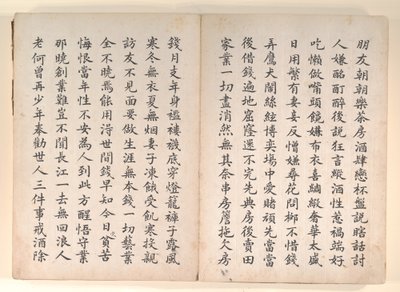 朋友朝朝樂茶房酒肆戀杯盤說瞎話討
人嫌酩酊醉後說狂言縱酒性惹禍端好
吃懶做嘴頭饞嫌布衣喜綢緞奢華太盛
日用繁有妻妾反憎嫌尋花問柳不惜錢
弄鷹犬鬧絲絃博奕場中愛賭頑先當當
後借錢遍地窟窿還不完先典房後賣田
家業一切盡消然無其奈串房簷拖欠房
錢月支年身襤褸襪底穿燈籠褲子露風
寒冬無衣夏無烟妻子凍餓受飢寒投親
訪友不見面要做生涯無本錢一切藝業
全不曉焉能用滑世間錢早知今日貧苦
悔恨當年性不安為人到此方醒悟守業
那曉創業難豈不聞長江一去無回浪人
老何曾再少年奉勸世人三件事戒酒除